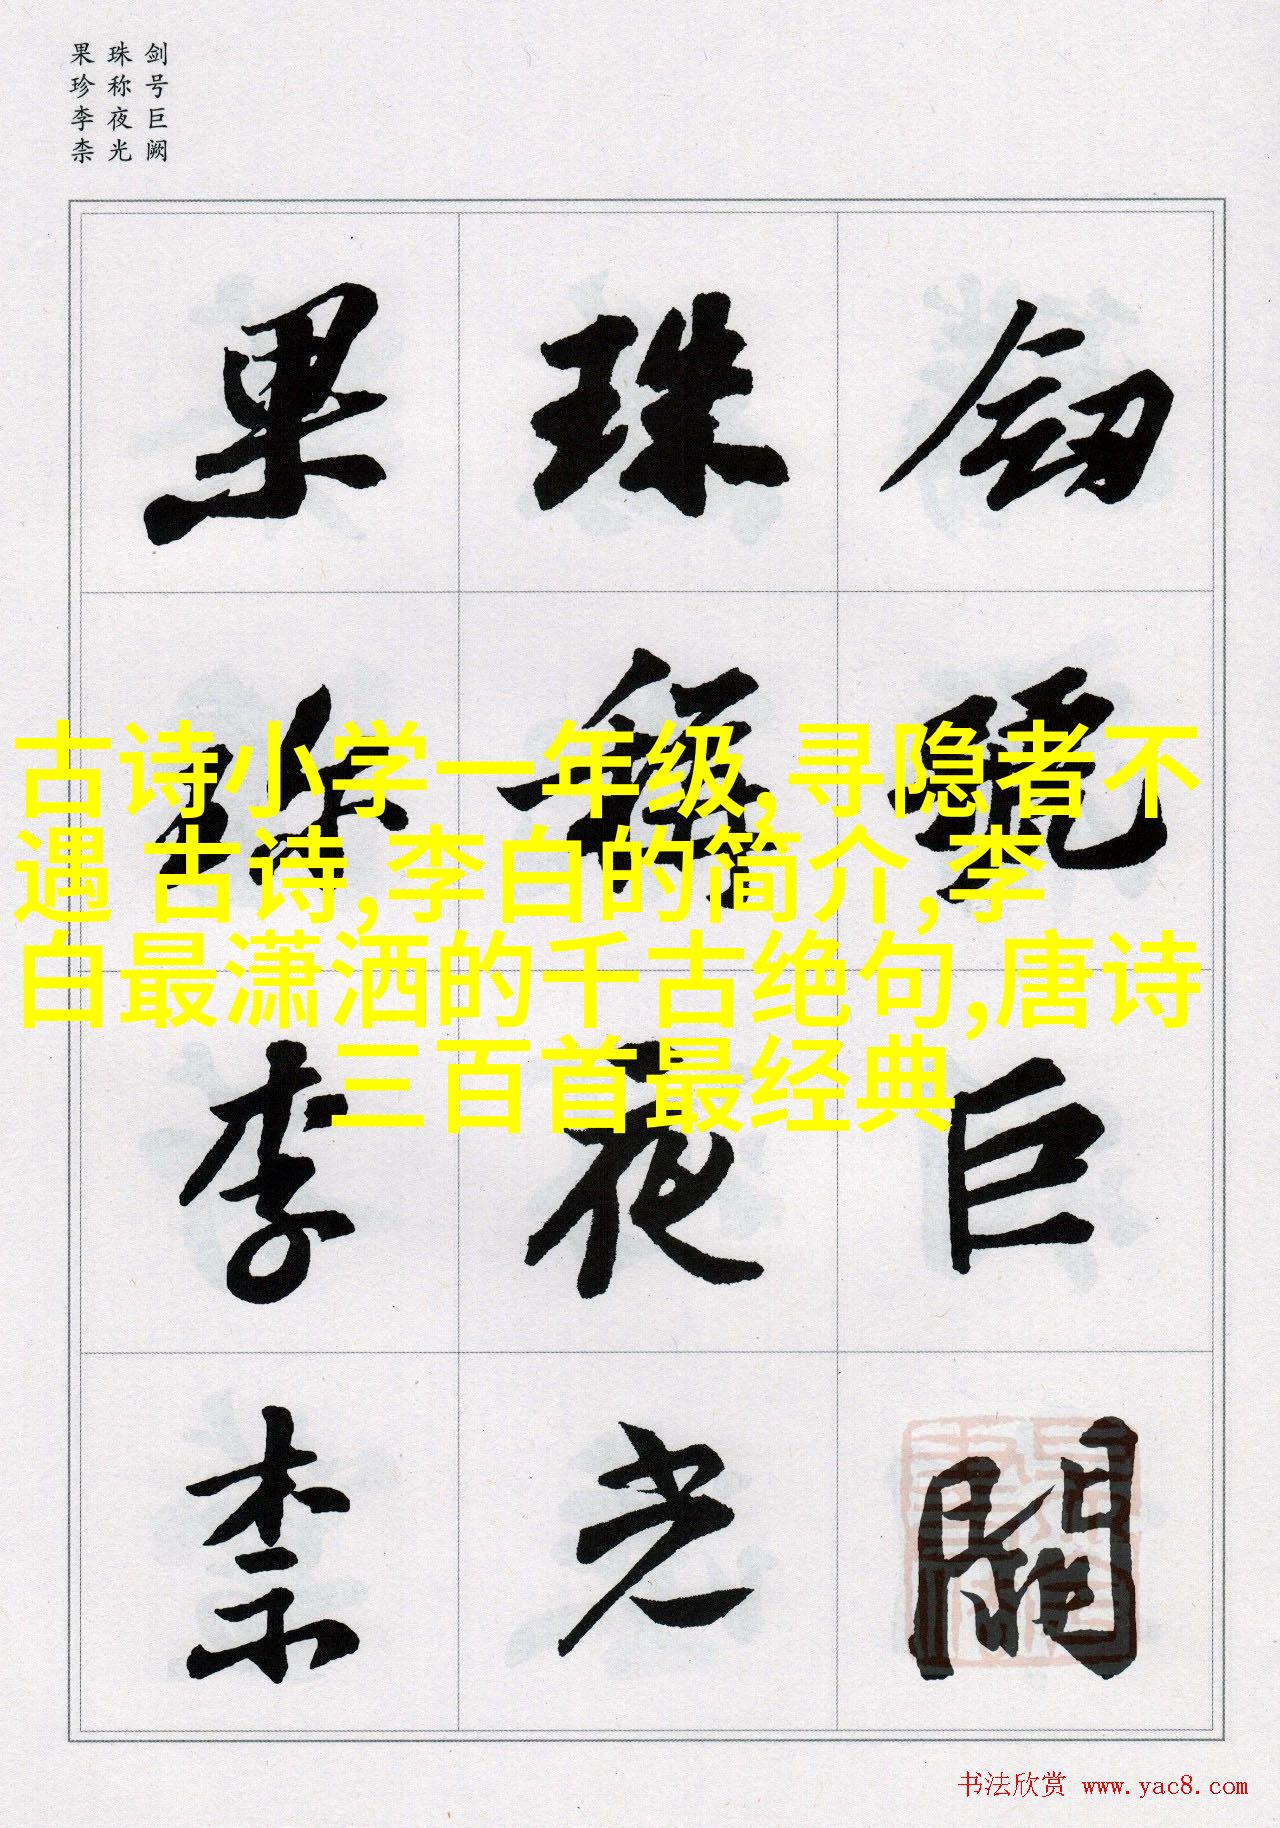 剑号巨阙
珠称夜光
果珍李柰
劎號巨闕
珠稱夜光
果珍李柰
古诗小学一年级,寻隐者不
遇 古诗,李白的简介,李
白最潇洒的千古绝句,唐诗
三百首最经典
书法欣赏 www.yac8.com